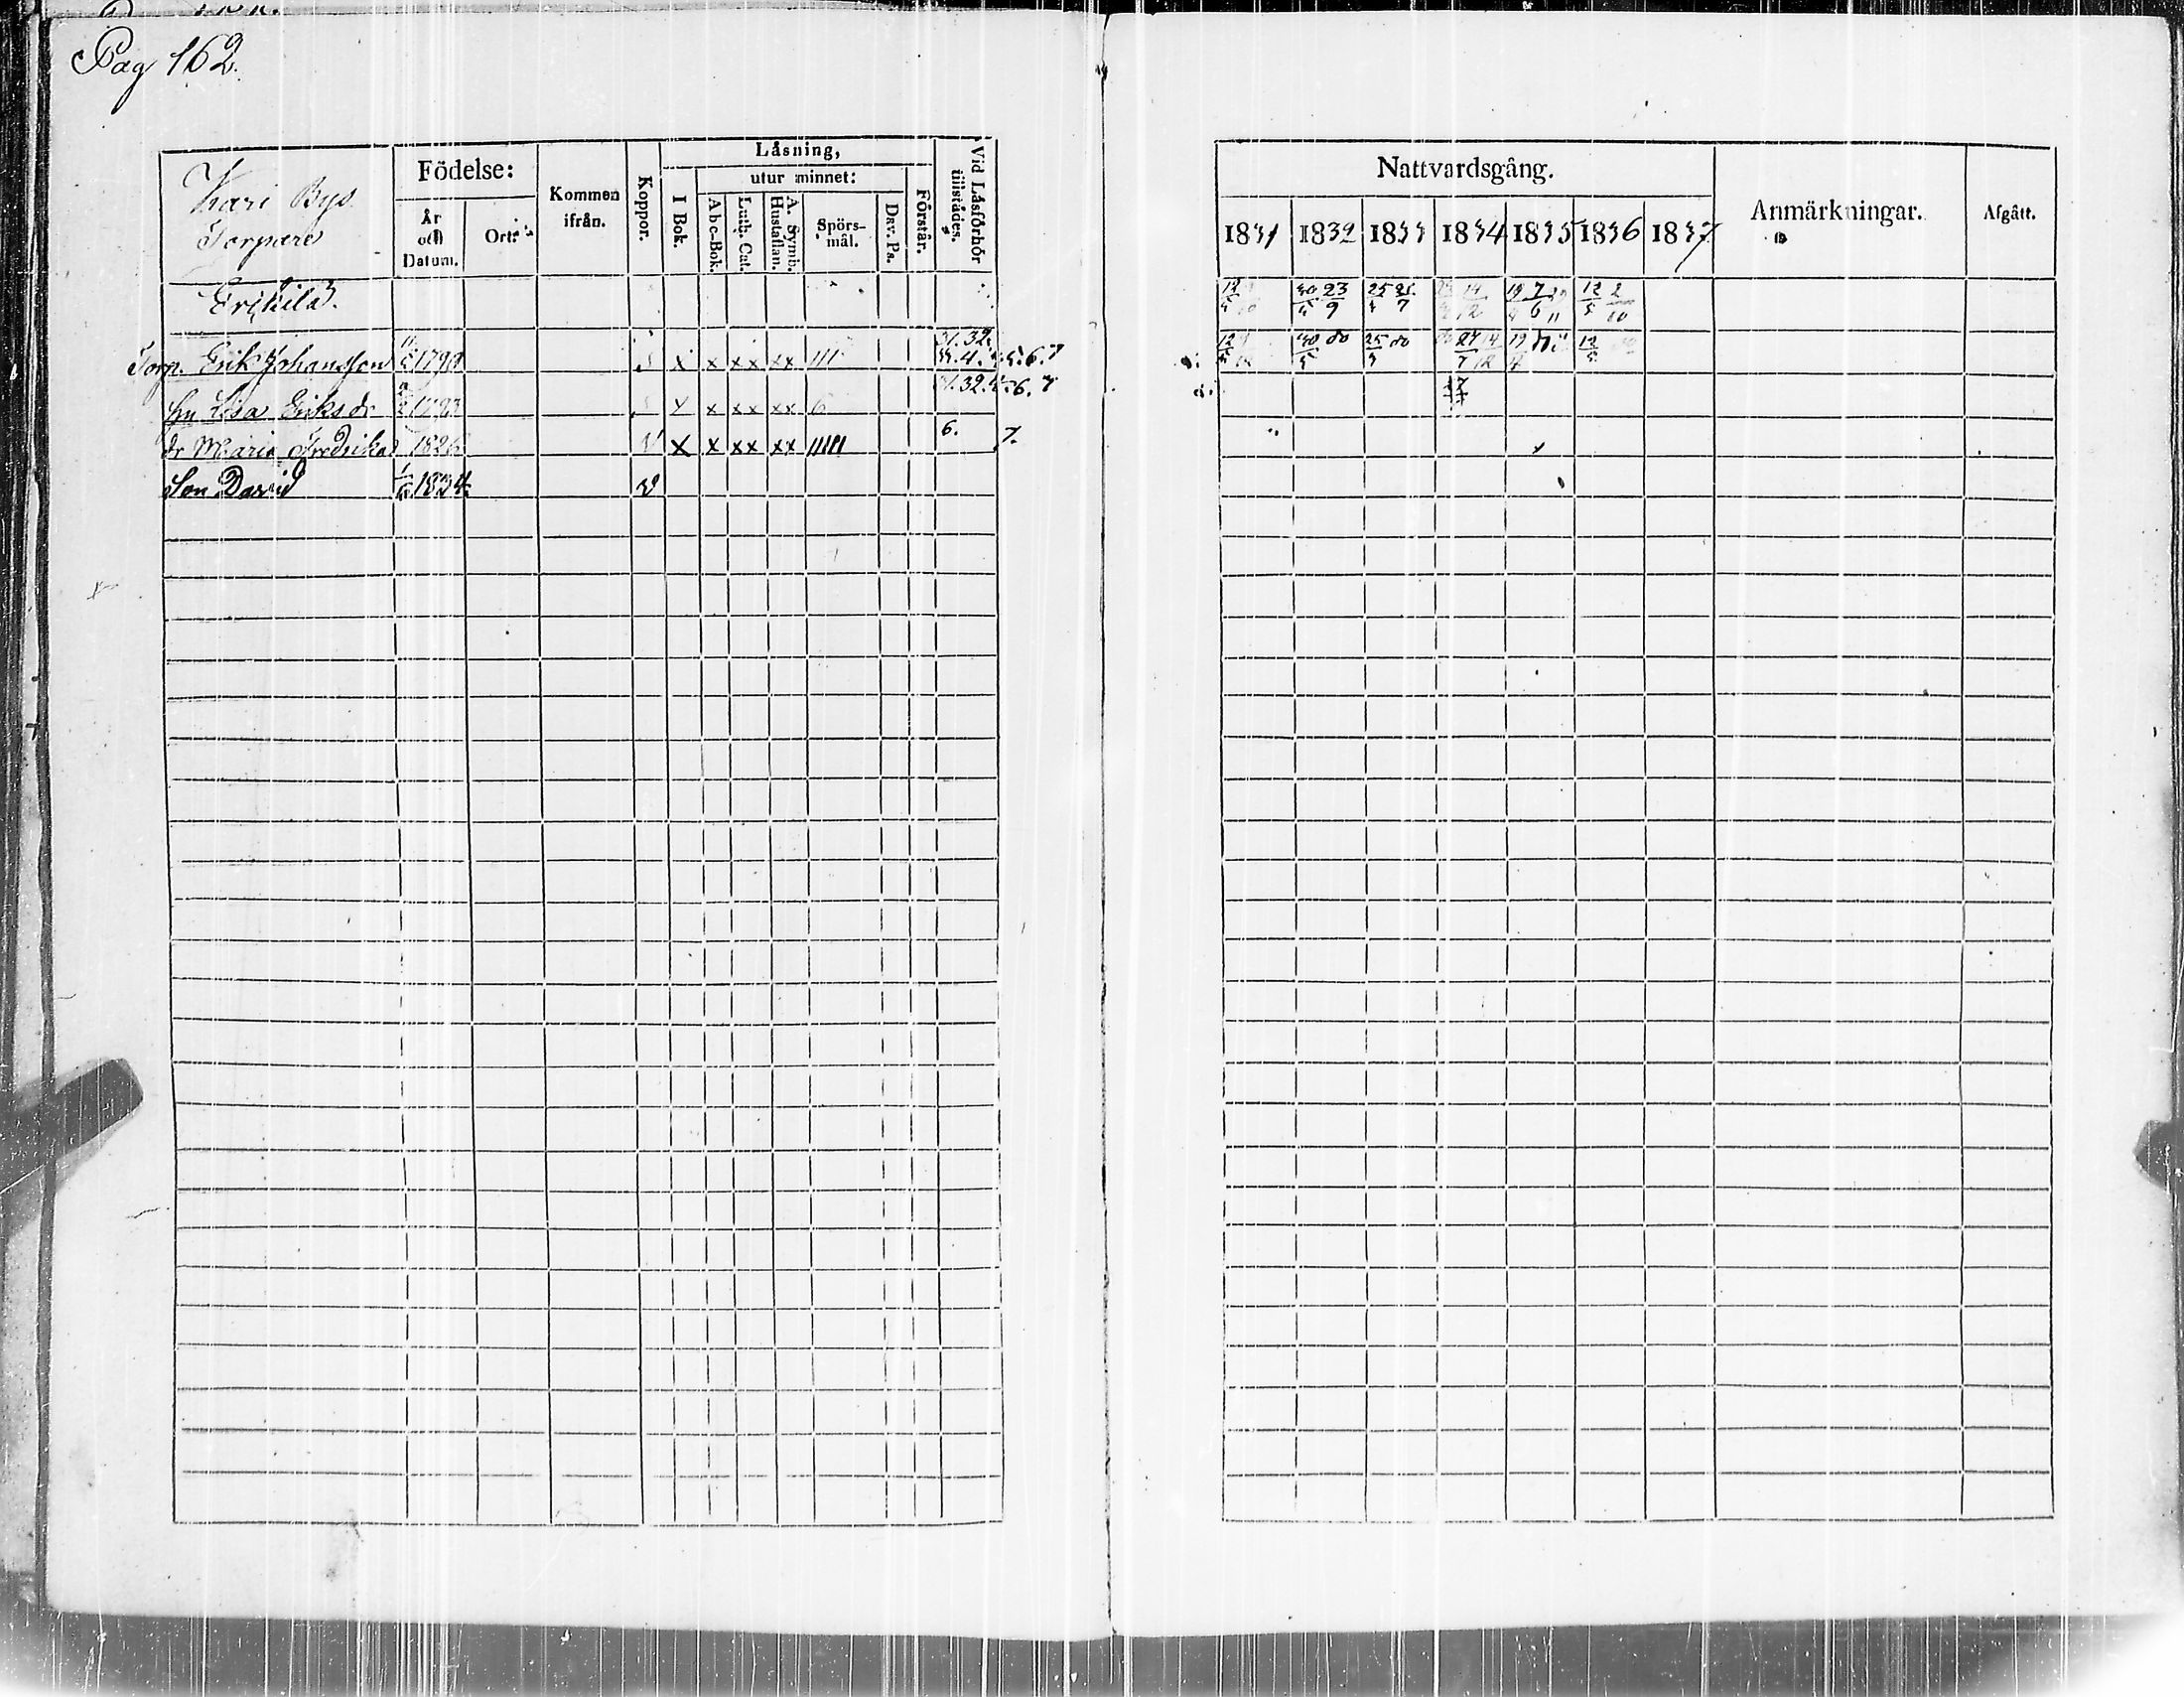 Pag 162.
Kari Bys
Torpare
Födelse:
År
och
Datum.
Ort:
Kommen
ifrån.
Koppor.
Läsning,
I Bok.
utur minnet:
Abc-Bok.
Luth. Cat.
A. Symb.
Hustaflan.
Spörs-
mål.
Dav. Ps.
Förstår.
Vid Läsförhör
tillstädes.
Nattvardsgång.
1831 1832 1833 1834 1835 1836 1837
Anmärkningar.
Afgått.
Erikila
12/5 30/5 23/9 25/4 7 14/12 19/4 7/6 12/5 2/10
Torp. Erik Johansson 1790 x x xx xx IIII 31.32. 33.4. 5.6.7
12/5 30/5 do 25/4 do 27/7 14/12 19/4 12/5
hu Lisa Eriksdr 1793 x xx xx 6 31.32. 6.7
dr Maria Fredrika 1826 v x x xx xx IIIII 6. 7.
Son David 1834 v